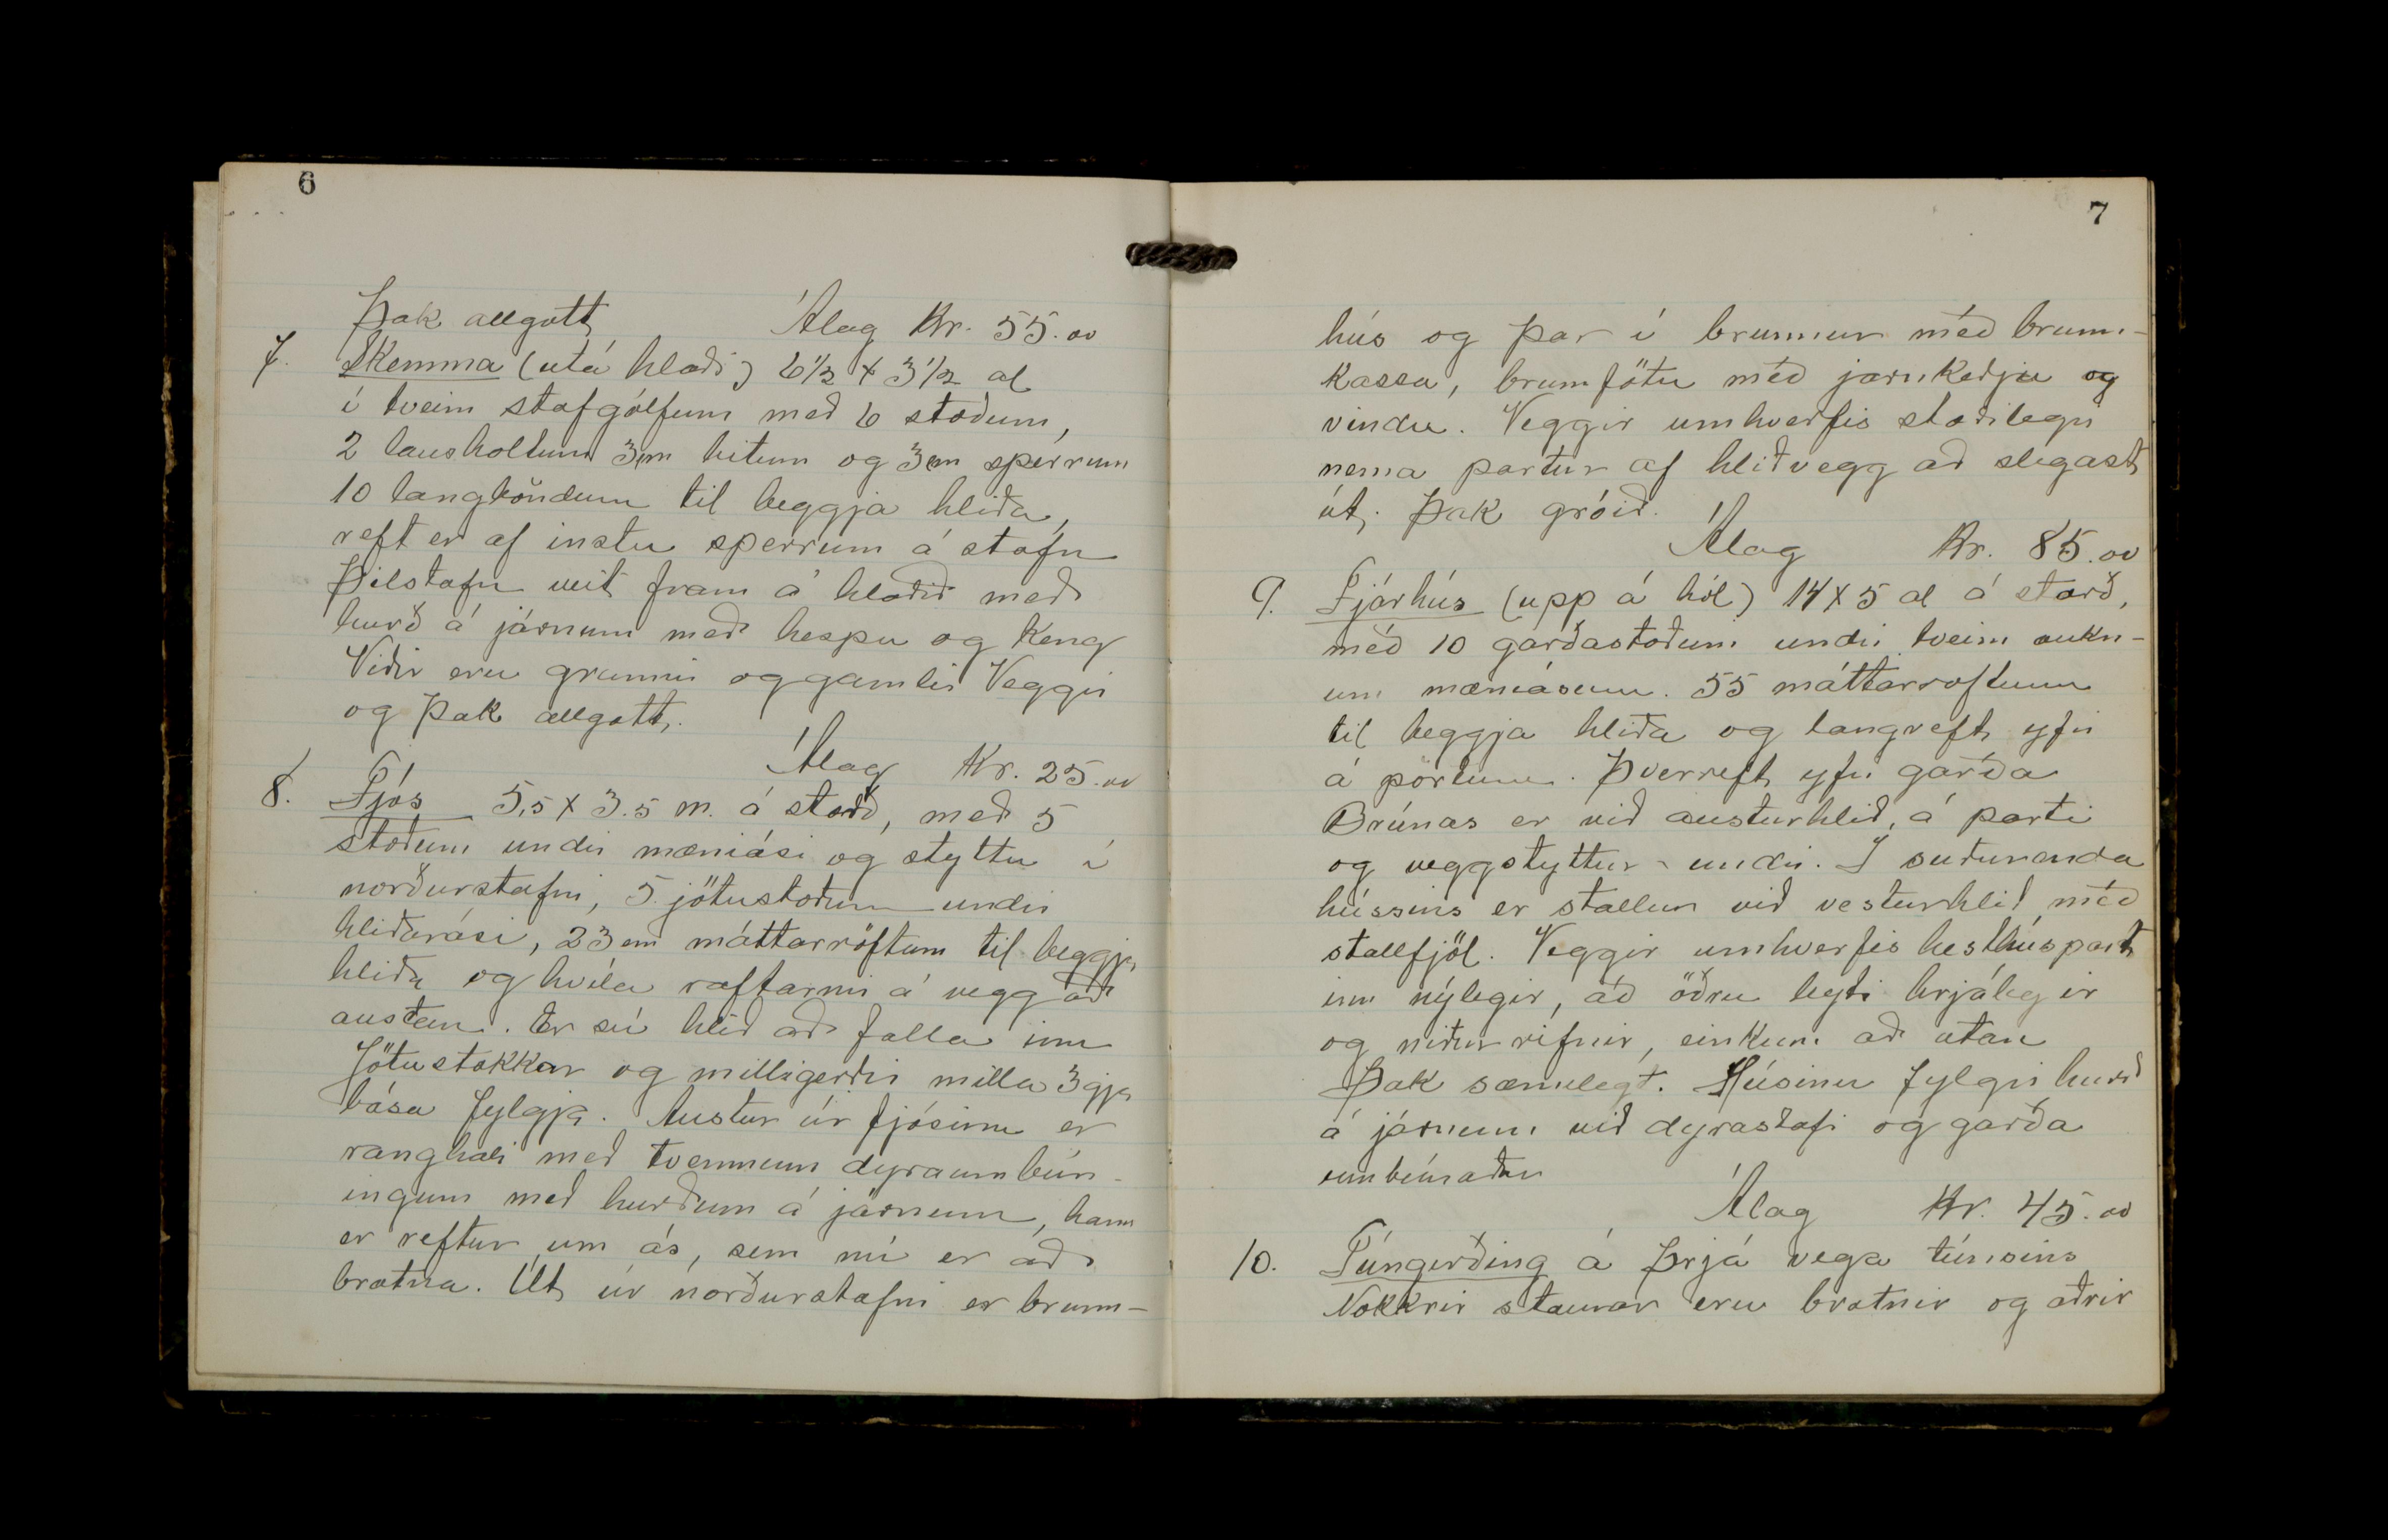 6
Þak allgott Álag Kr. 55.00
7. Skemma (útá hlaði) 6½ x 3½ al
í tveim stafgólfum með 6 stoðum,
2 lausholtum 3m bitum og 3em sperrum
10 langböndum til beggja hliða,
reft er af instu sperrum á stafn
Þilstafn veit fram á hlaðið með
hurð á járnum með hespu og Keng
Viðir eru grannir og gamlir Veggir
og þak allgott.
Álag Kr. 25.00
8. Fjós 5,5 x 3.5 m. á stærð, með 5
stoðum undir mæniási og styttu í
norðurstafni, 5 jötustoðum undir
hliðarási, 23em máttarröftum til beggja
hliða og hvíla raftarnir á vegg að
austan. Er sú hlið að falla inn
Jötustokkar og milligerðir milla 3gja
bása fylgja. Austur úr fjósinu er
ranghali með tvennum dyraumbún-
ingum með hurðum á járnum, hann
er reftur um ás, sem nú er að
brotna. Út úr norðurstafni er brunn-
7
hús og þar í brunnur með brunn-
kassa, brunnfötu með járnkeðju og
vindu. Veggir umhverfis stæðilegir
nema partur af hliðvegg að slegast
út. Þak gróið.
Álag Kr. 85.00
9. Fjárhús (upp á hól) 14 x 5 al á stærð,
með 10 garðastoðum undir tveim aukn-
um mæniásum. 55 máttarroftum
til beggja hliða og langreft yfir
á pörtum. Þverreft yfir garða
Brúnás er við austurhlið, á parti
og veggstyttur undir. Í suðurenda
hússins er stallur við vesturhlið með
stallfjöl. Veggir umhverfis hesthúspart
inn nýlegir, að öðru leyti hrjálegir
og niðurrifnir, einkum að utan
Þak sæmilegt. Húsinu fylgir hurð
á járnum við dyrastafi og garða
umbúnaður
Álag Kr. 45.00
10. Túngirðing á þrjá vega túnsins
Nokkrir staurar eru brotnir og aðrir